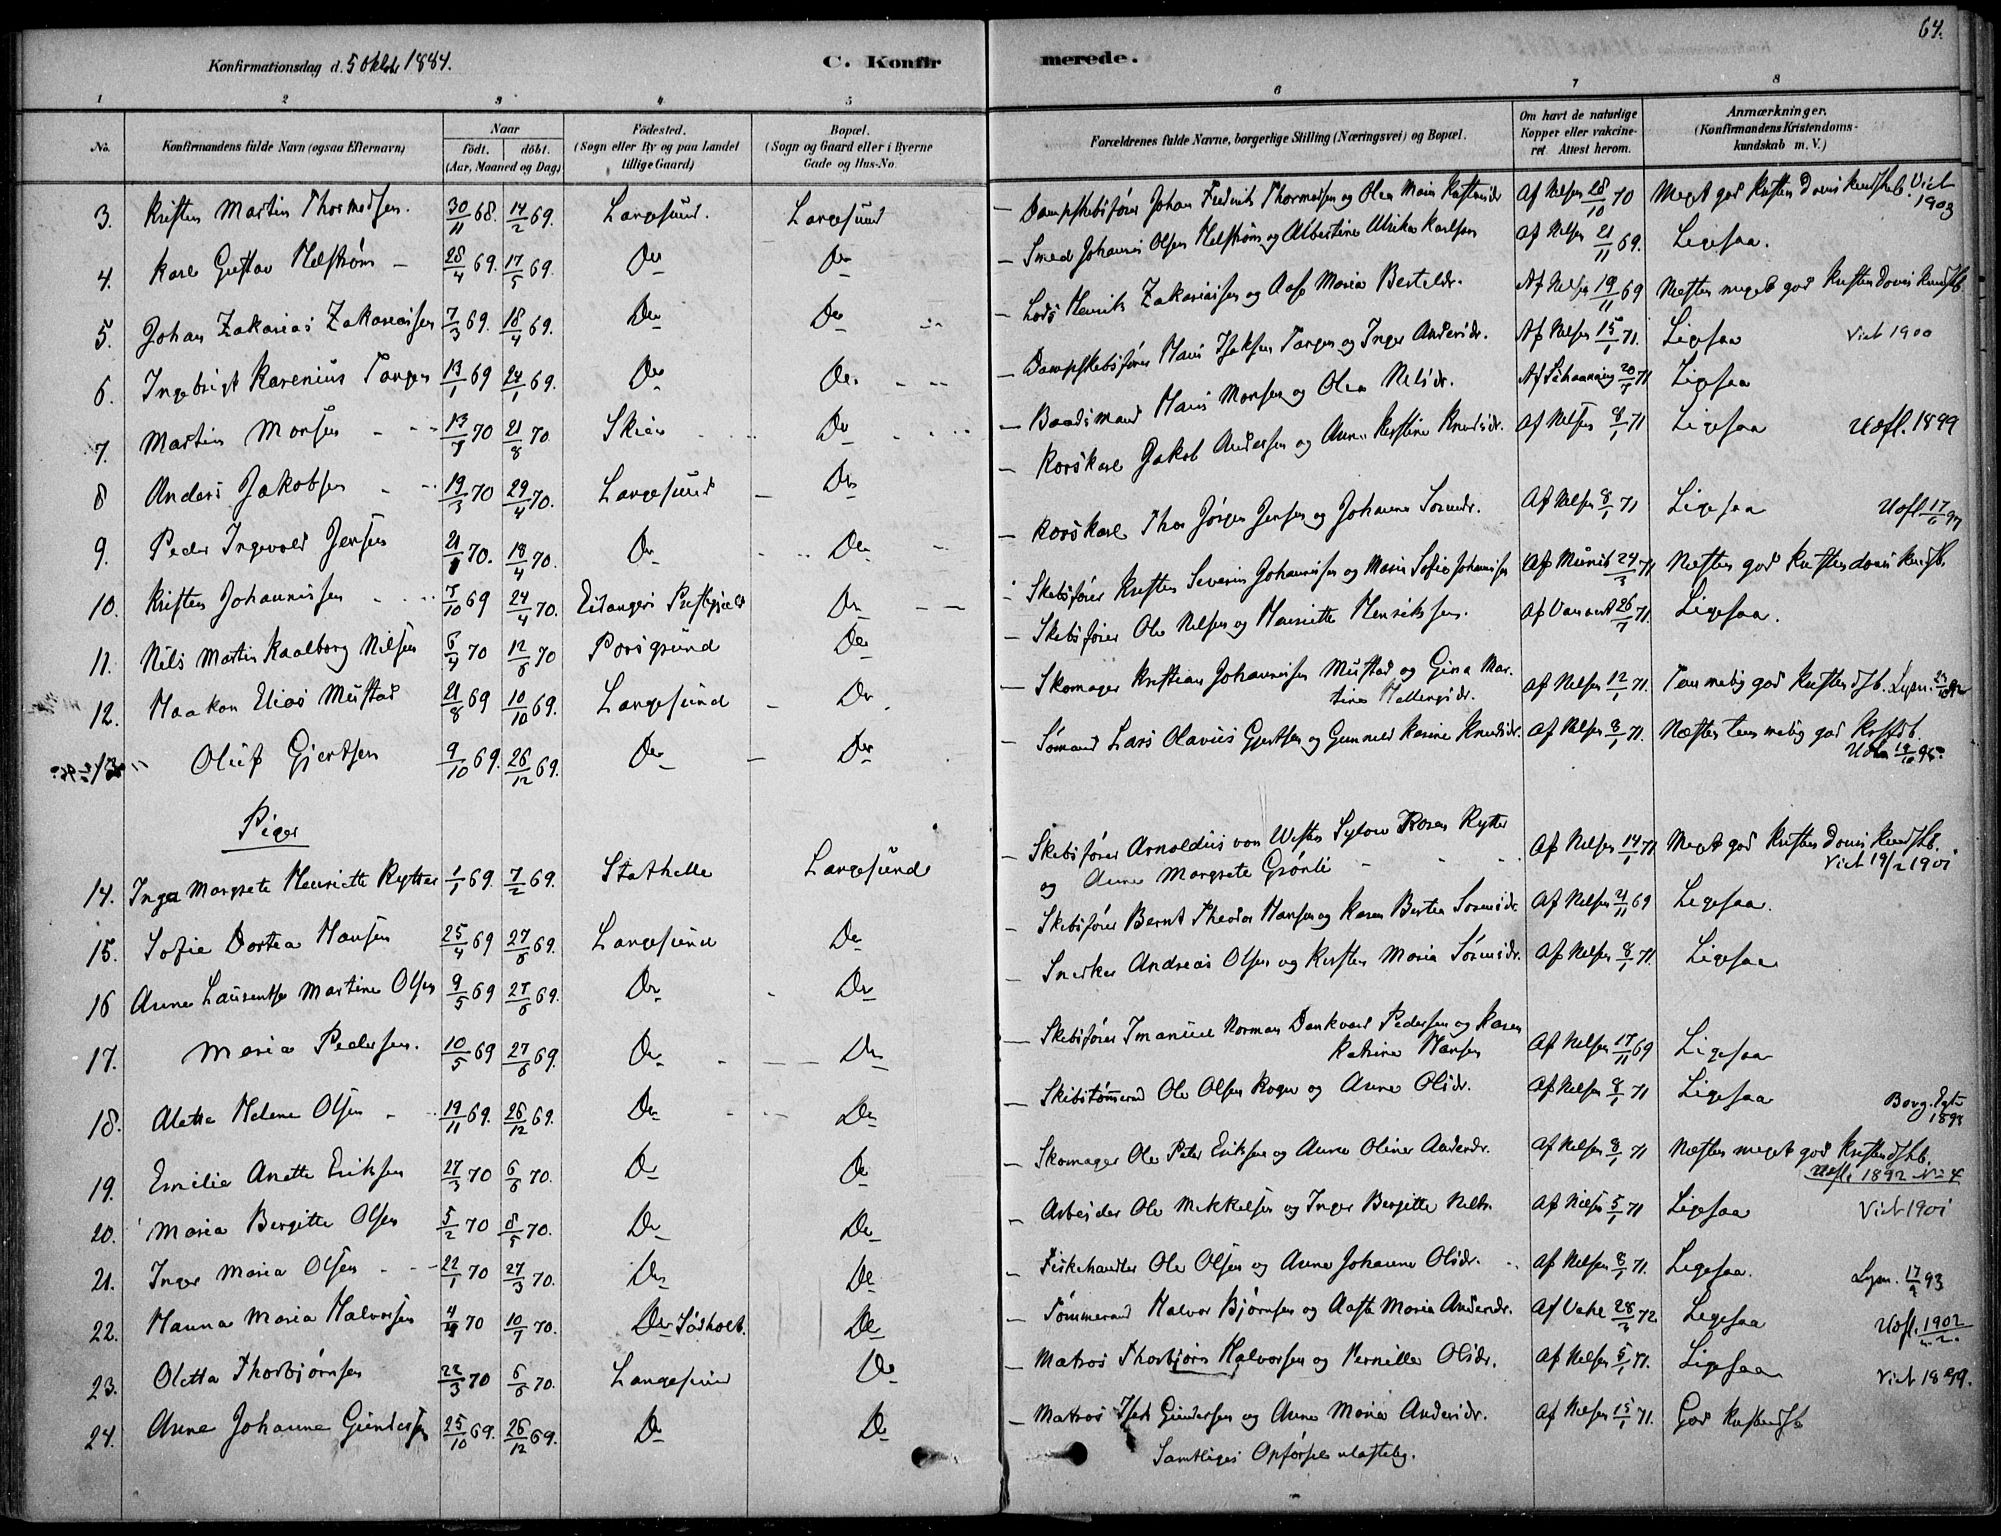 64.
Konfirmationsdag d. 5 Oktob 1884.
C. Konfirmerede.
1 2 3 4 5 6 7 8
No.
Konfirmandens fulde Navn (ogsaa Efternavn)
Naar
født. døbt.
(Aar, Maaned og Dag)
Fødested.
(Sogn eller By og paa Landet
tillige Gaard)
Bopæl.
(Sogn og Gaard eller i Byerne
Gade og Hus-No.
Forældrenes fulde Navne, borgerlige Stilling (Næringsvei) og Bopæl.
Om havt de naturlige
Kopper eller vakcine-
ret. Attest herom.
Anmærkninger.
(Konfirmandens Kristendoms-
kundskab m. V.)
3. Kristen Martin Thormodsen. 30/11 68. 14/2 69. Langesund. Langesund — Dampskibsfører Johan Fredrik Thormodsen og Olea Af Nelsen 28/10 70 Meget god Kristendomskundskb. Vict 1903
4. Karl Gustav Helstrøm — 28/4 69. 17/5 69. Do Do — Smed Johannes Olsen Helstrøm og Albertine Ulrika Karlsen Af Nelsen 21/11 69. Ligesaa.
5. Johan Zakarias Zakariassen 7/3 69. 18/4 69. Do Do — Lods Henrik Zakariassen og Aase Maria Bertelsdr. Af Nelsen 19/11 69 Næsten meget god Kristendomskundskb
6. Ingebrigt Karenius Tangen 13/1 69 24/1 69. Do Do — Dampskibsfører Hans Isaksen Tangen og Inger Andersdr. Af Nelsen 15/1 71. Ligesaa Vict 1900
7. Martin Monsen 13/7 70 21/8 70. Skien Do — Baadsmand Hans Monsen og Olea Nilsdr. Af Schanning 20/7 71 Ligesaa
8 Anders Jakobsen 19/3 70 29/4 70. Langesund Do — Korskarl Jakob Andersen og Anne Kirstine Knudsdr. Af Nelsen 8/1 71 Ligesaa Uofl. 1899
9. Peder Ingevald Jensen 21/1 70. 18/4 70. Do Do — Korskarl Thor Jørgen Jensen og Johanne Af Nelsen 8/1 71 Ligesaa Uofl 17/6 97
10. Kristen Johannissen 7/10 69 24/4 70. Eidangers Præstegjeld Do Skibsfører Kristen Severin Johannissen og Maren Sofie Johannissen Af Munib 24/3 71 Næsten god Kristendomskundskb.
11. Nils Martin Kaalborg Nilsen 6/4 70 12/6 70 Porsgrund Do — Skibsfører Ole Nelsen og Henriette Henriksen. Af 26/7 71. Ligesaa.
12. Haakon Elias Mustad 21/8 69 10/10 69. Langesund Do — Skomager Kristian Johannissen Mustad og Gina Mar-
tine Af Nelsen 12/1 71. Temmelig god Kristendskb. Lysn.
" Oluf Gjertsen 9/10 69. 26/12 69. Do Do — Sømand Lars Olavius Gjertsen og Gunnild Karine Knudsdr. Af Nelsen 8/1 71. Næsten temmelig god Krstdskb.
Piger
14. Inger Margrete Henriette Rytter 1/1 69. 7/2 69. Stathelle Langesund — Skibsfører Arnoldus von Westen Sylow Koren Rytter
og Anne Margrete Grønli Af Nelsen 14/1 71 Meget god Kristendomskundskb. Vict 19/2 1901
15. Sofie Dortea Hansen 25/4 69 27/6 69. Langesund Do — Skibsfører Bernt Theodor Hansen og Karen Bertea Sørensdr Af Nelsen 21/11 69 Ligesaa.
16 Anne Laurentse Martine Olsen 9/5 69 27/6 69. Do Do — Snedker Andreas Olsen og Kirsten Maria Sørensdr. Af Nelsen 8/1 71. Ligesaa
17. Maria Pedersen. 10/5 69 27/6 69. Do Do — Skibsfører Imanuel Norman Dankvard Pedersen og Karen
Katrine Hansen Af Nelsen 17/11 69 Ligesaa
18. Alette Helene Olsen 19/11 69. 26/12 69. Do Do — Skibstømmerm. Ole Olsen Roger og Anne Olsdr. Af Nelsen 8/1 71 Ligesaa Borg. Egte 1898
19. Emilie Anette Eriksen 27/3 70 6/6 70. Do Do — Skomager Ole Peter Eriksen og Anne Oline Andersdr. Af Nelsen 8/1 71 Næsten meget god Kristendskb. Uofl. 1892 No 4
20. Maria Bergitte Olsen 5/2 70 8/5 70. Do Do — Arbeider Ole Mikkelsen og Inger Bergitte Nilsdr. Af Nelsen 5/1 71 Ligesaa Vict 1901
21. Inger Maria Olsen 22/1 70 27/3 70. Do Do — Fiskehandler Ole Olsen og Anne Johanne Olsdr. Af Nelsen 8/1 71. Ligesaa. Lysn. 17/9 93
22. Hanna Maria Halvorsen 4/4 70 10/7 70. Do Do — Tømmermand Halvor Bjørnsen og Aaste Maria Andersdr. Af Vahl 28/3 72 Ligesaa Uofl. 1902
23. Oletta Thorbjørnsen 22/3 70 6/6 70. Langesund Do — Matros Thorbjørn Halvorsen og Pernille Olsdr. Af Nelsen 5/1 71. Ligesaa Vict 1899.
24. Anne Johanne Gundersen 25/10 69. 26/12 69. Do Do — Matros Isak Gundersen og Anne Maria Andersdr. Af Nelsen 15/1 71. God Kristendskb
Samtliges Opførsel ulastelig.